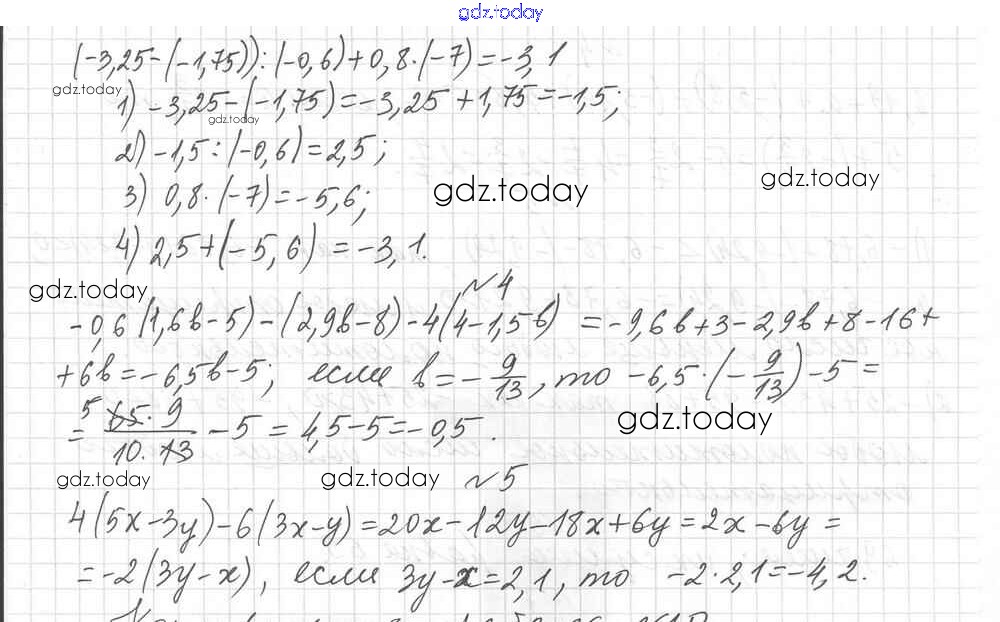 gdz.today
(-3,25-(-1,75)):(-0,6)+0,8·(-7)=-3,1
gdz.today
1) -3,25-(-1,75)=-3,25+1,75=-1,5;
gdz.today
2) -1,5:(-0,6)=2,5;
gdz.today
3) 0,8·(-7)=-5,6;
gdz.today
4) 2,5+(-5,6)=-3,1.
gdz.today
№4
-0,6(1,6b-5)-(2,9b-8)-4(4-1,5b) =-9,6b+3-2,9b+8-16+
+6b=-6,5b-5; если b=-9/13, то -6,5·(-9/13)-5=
= 5 65·9/10·13 -5=4,5-5=-0,5.
gdz.today
gdz.today
gdz.today
№5
4(5x-3y)-6(3x-y)=20x-12y-18x+6y=2x-6y=
=-2(3y-x), если 3y-x=2,1, то -2·2,1=-4,2.